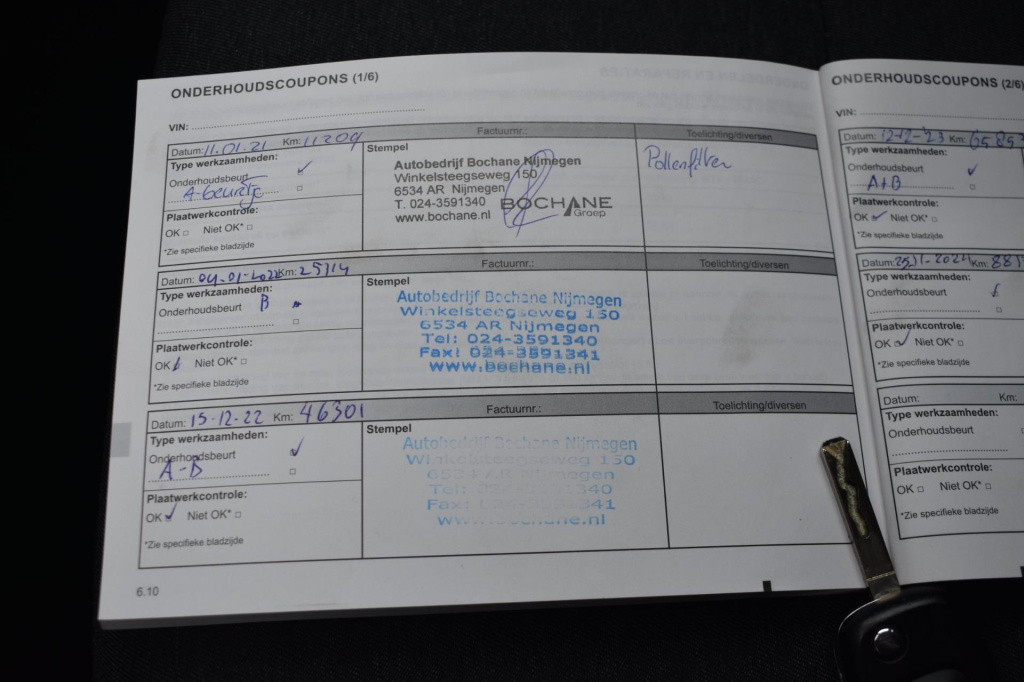 ONDERHOUDSCOUPONS (1/6)
VIN:
Datum: 11.01.21 Km: 11209 Factuurnr.: Toelichting/diversen
Type werkzaamheden:
Onderhoudsbeurt
A-beurtje
Plaatwerkcontrole:
OK □ Niet OK* □
*Zie specifieke bladzijde
Stempel
Autobedrijf Bochane Nijmegen
Winkelsteegseweg 150
6534 AR Nijmegen
T. 024-3591340
www.bochane.nl
BOCHANE
Groep
Pollenfilter
Datum: 04-01-2022 Km: 25714 Factuurnr.: Toelichting/diversen
Type werkzaamheden:
Onderhoudsbeurt B
Plaatwerkcontrole:
OK Niet OK* □
*Zie specifieke bladzijde
Stempel
Autobedrijf Bochane Nijmegen
Winkelsteegseweg 150
6534 AR Nijmegen
Tel: 024-3591340
Fax: 024-3591341
www.bochane.nl
Datum: 15-12-22 Km: 46301 Factuurnr.: Toelichting/diversen
Type werkzaamheden:
Onderhoudsbeurt
A-B
Plaatwerkcontrole:
OK Niet OK* □
*Zie specifieke bladzijde
Stempel
Autobedrijf Bochane Nijmegen
Winkelsteegseweg 150
6534 AR Nijmegen
Tel: 024-3591340
Fax: 024-3591341
www.bochane.nl
6.10
ONDERHOUDSCOUPONS (2/6)
VIN:
Datum: 12-12-'23 Km: 6585
Type werkzaamheden:
Onderhoudsbeurt
A+B
Plaatwerkcontrole:
OK Niet OK* □
*Zie specifieke bladzijde
Datum: Km: 881
Type werkzaamheden:
Onderhoudsbeurt
Plaatwerkcontrole:
OK Niet OK* □
*Zie specifieke bladzijde
Datum: Km:
Type werkzaamheden:
Onderhoudsbeurt
Plaatwerkcontrole:
OK □ Niet OK* □
*Zie specifieke bladzijde